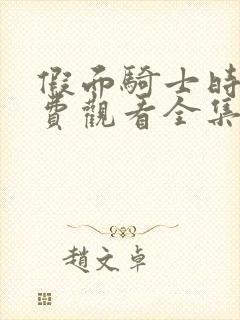 假面騎士時
費觀看全集
趙文卓